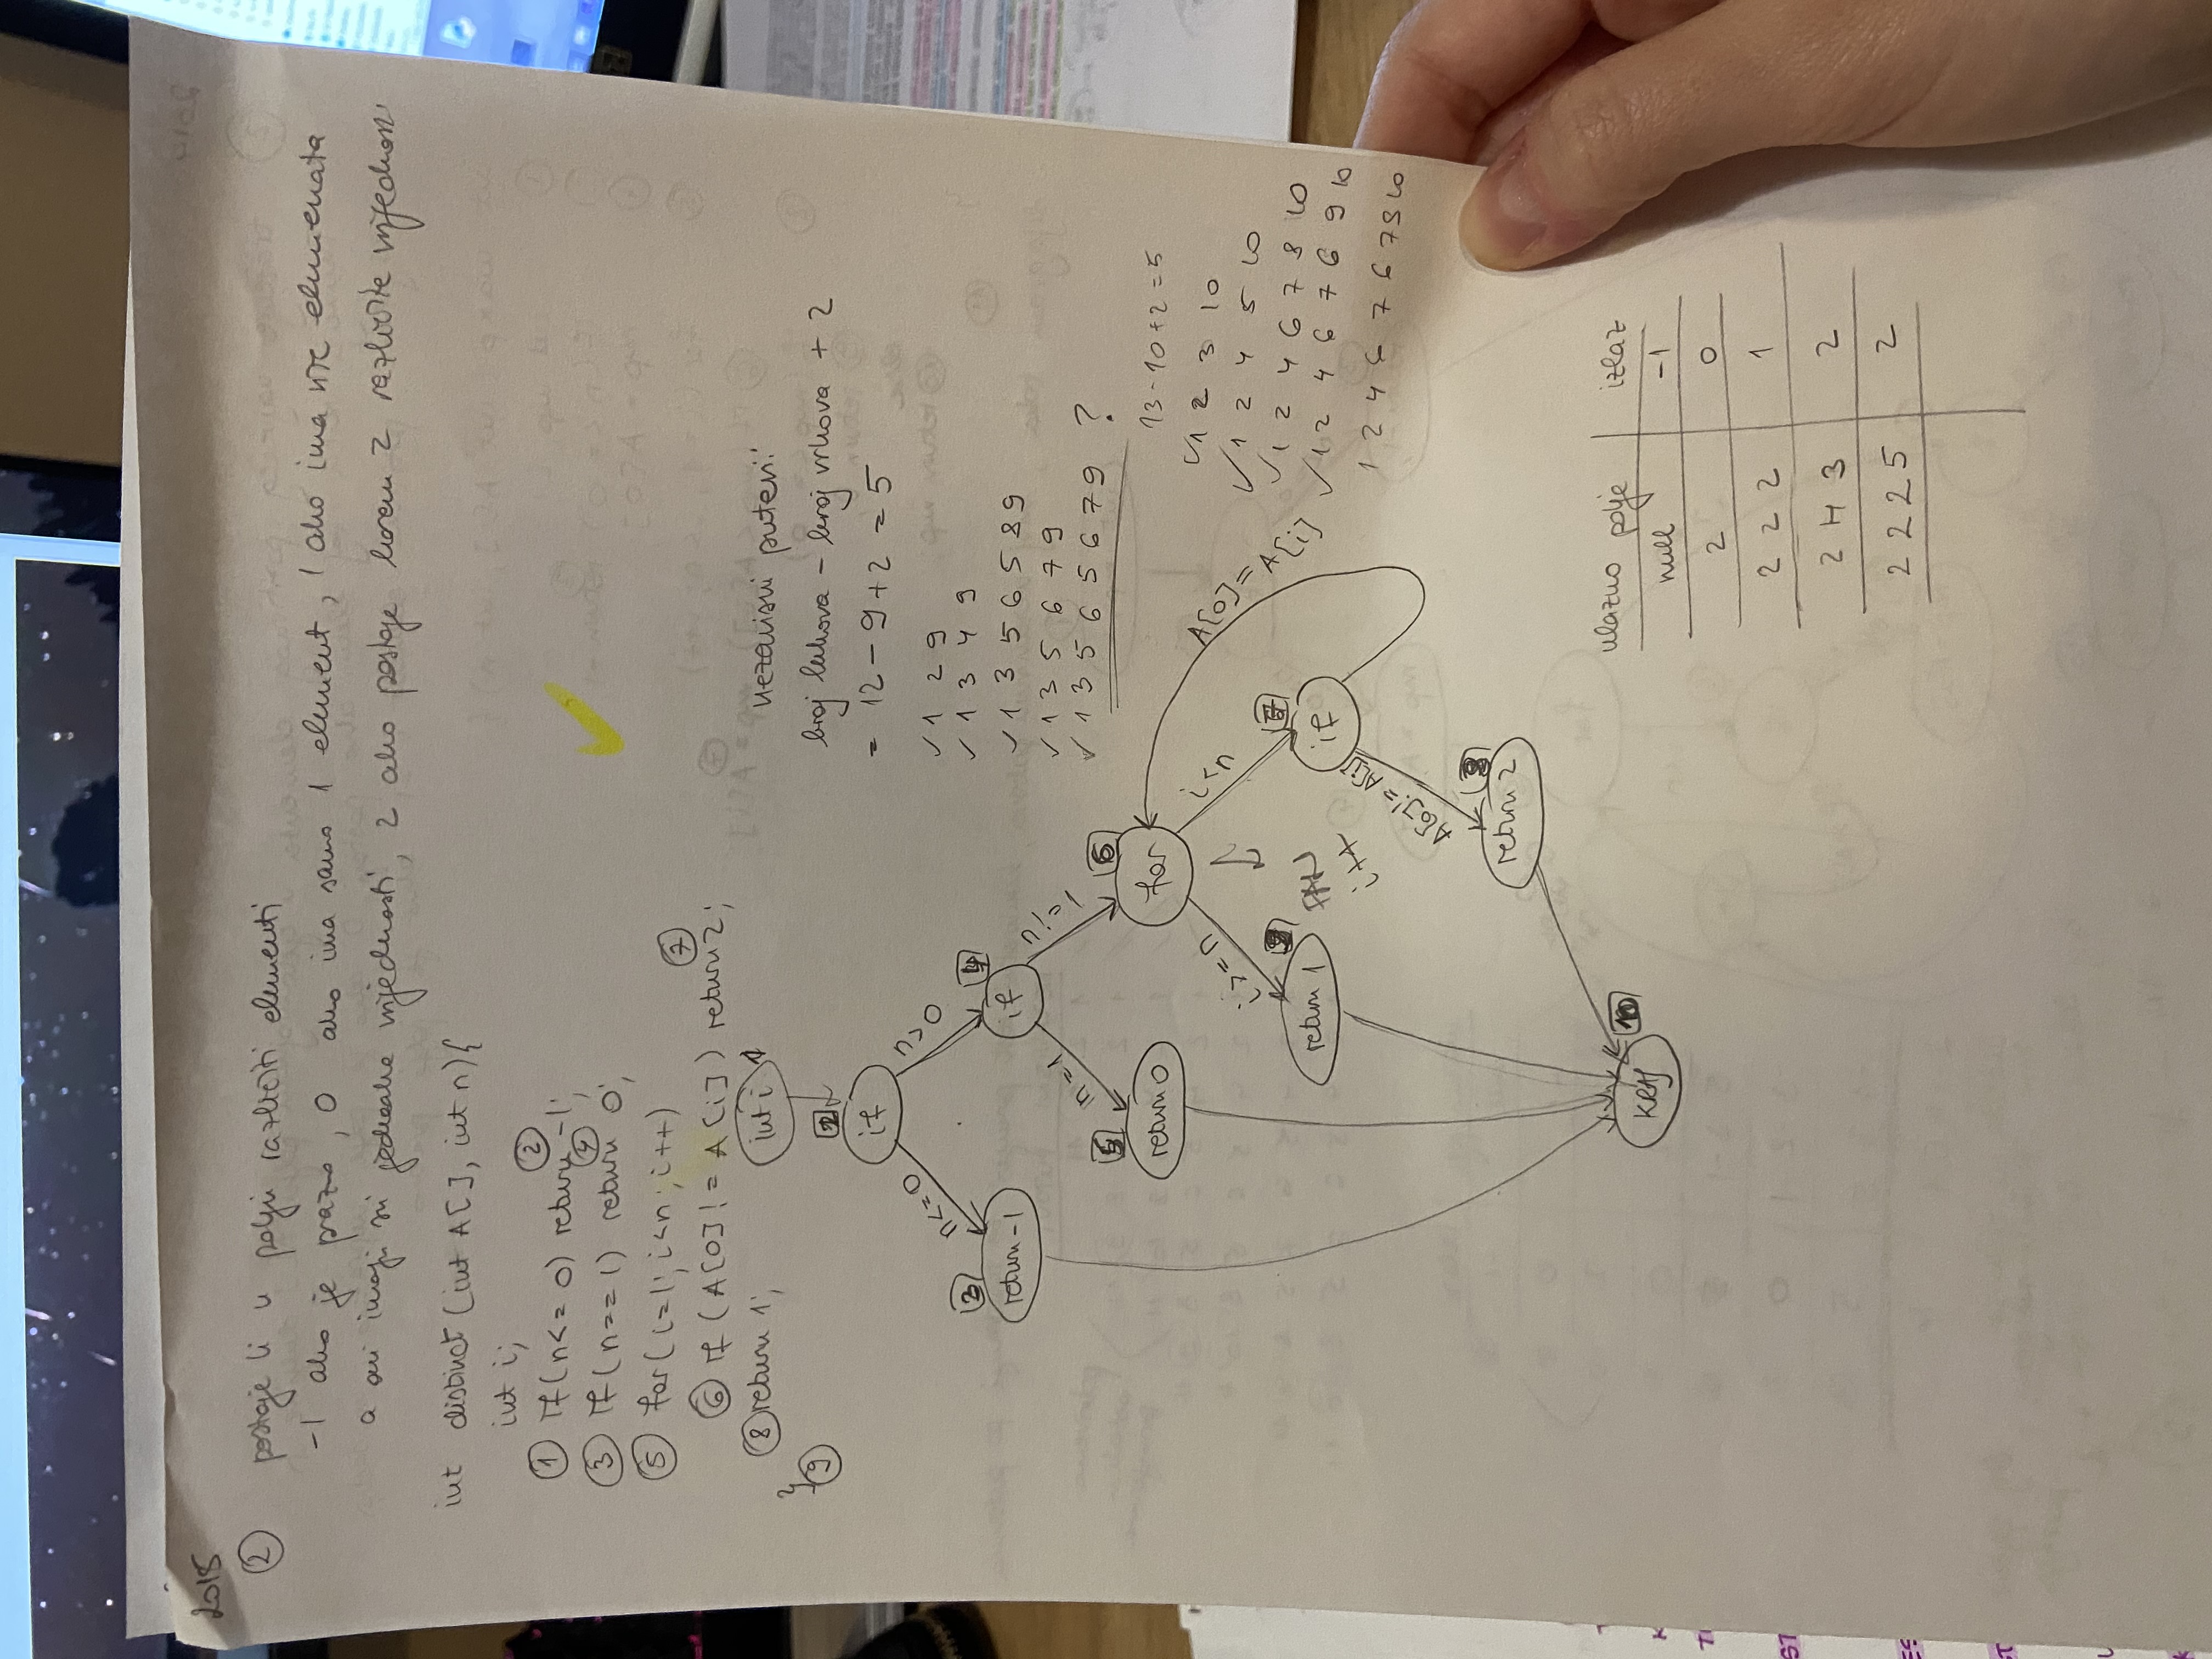 2015
② postoje li u polju različiti elementi
-1 ako je prazno, 0 ako ima samo 1 element, 1 ako ima više elemenata
a oni imaju svi jednake vrijednosti, 2 ako postoje barem 2 različite vrijednosti
int distinct (int A[], int n){
int i;
① if(n<=0) return -1; ②
③ if(n==1) return 0; ④
⑤ for(i=1; i<n; i++)
⑥ if (A[0]!=A[i]) return 2; ⑦
⑧ return 1;
} ⑨
int i 1
2
if
n<=0
n>0
3
return -1
4
if
n=1
n!=1
5
return 0
6
for
i>=n
i<n
A[0]=A[i]
return 1
i++
7
if
A[0]!=A[i]
return 2
KRAJ 10
nezavisni putevi:
broj lukova - broj vrhova + 2
= 12 - 9 + 2 = 5
✓ 1 2 9
✓ 1 3 4 9
✓ 1 3 5 6 5 8 9
✓ 1 3 5 6 7 9
✓ 1 3 5 6 5 6 7 9 ?
13-10+2=5
✓ 1 2 3 10
✓ 1 2 4 5 10
✓ 1 2 4 6 7 8 10
✓ 1 2 4 6 7 6 9 10
1 2 4 6 7 6 7 8 10
ulazno polje | izlaz
null | -1
2 | 0
2 2 2 | 1
2 4 3 | 2
2 2 2 5 | 2